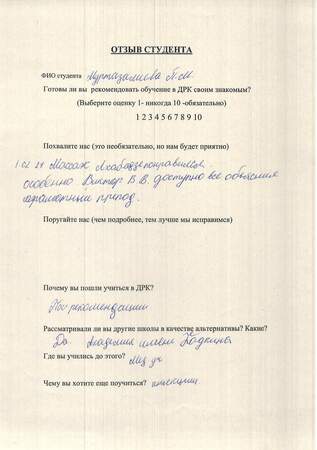 ОТЗЫВ СТУДЕНТА
ФИО студента Муртазалиева П.М
Готовы ли вы рекомендовать обучение в ДРК своим знакомым?
(Выберите оценку 1- никогда 10 -обязательно)
1 2 3 4 5 6 7 8 9 10
Похвалите нас (это необязательно, но нам будет приятно)
Массаж понравился.
особенно Виктор В.В. доступно все объяснил
грамотный препод.
Поругайте нас (чем подробнее, тем лучше мы исправимся)
Почему вы пошли учиться в ДРК?
По рекомендации
Рассматривали ли вы другие школы в качестве альтернативы? Какие?
Да. Академия имени
Где вы учились до этого? Мед уч
Чему вы хотите еще поучиться? инъекции.